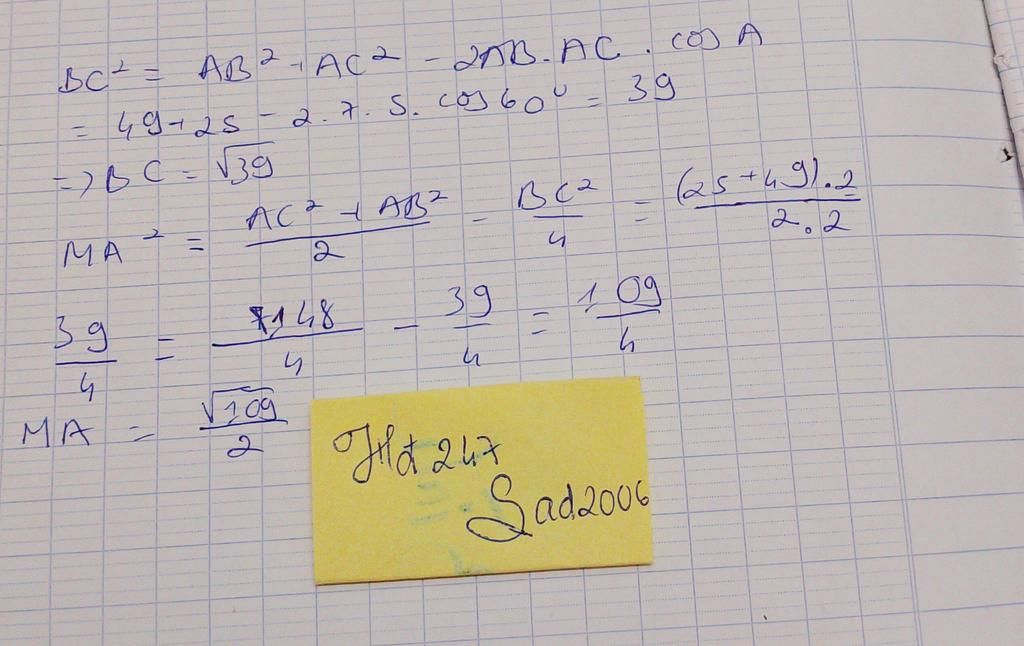 BC² = AB² + AC² - 2AB.AC . cos A
= 49+25 - 2.7.5. cos 60⁰ = 39
=> BC = √39
MA² = (AC² + AB²)/2 - BC²/4 = ((25+49).2)/(2.2)
39/4 = 148/4 - 39/4 = 109/4
MA = √109/2
Hd247
Sad2006